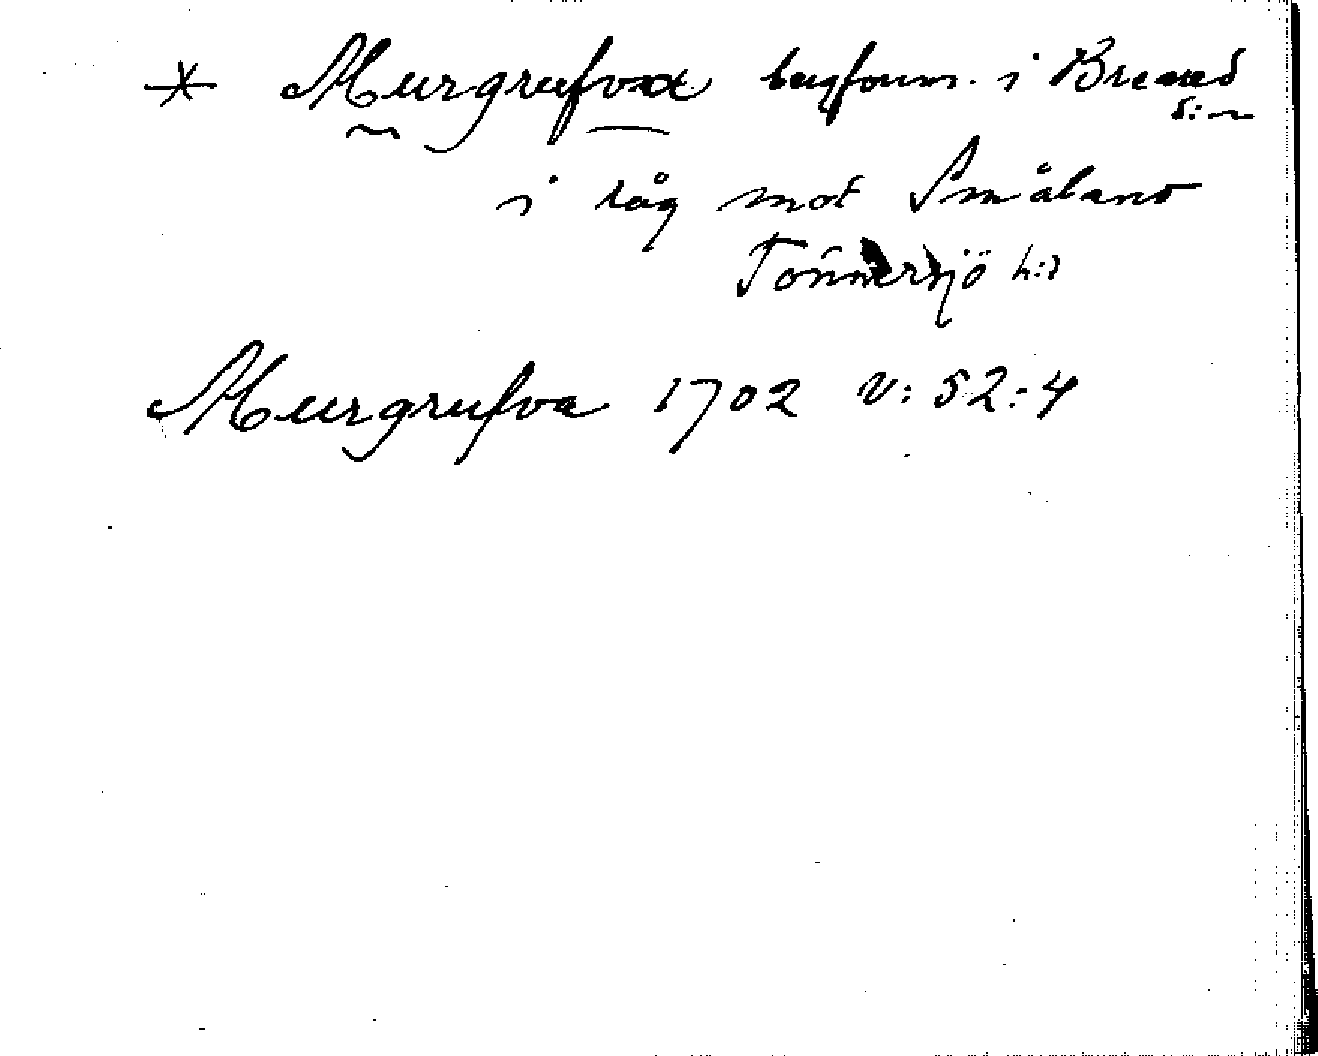 * Murgrufva i Breared
s:n
i råg mot Småland
Tönnersjö h:d
Murgrufva 1702 V: 52:4